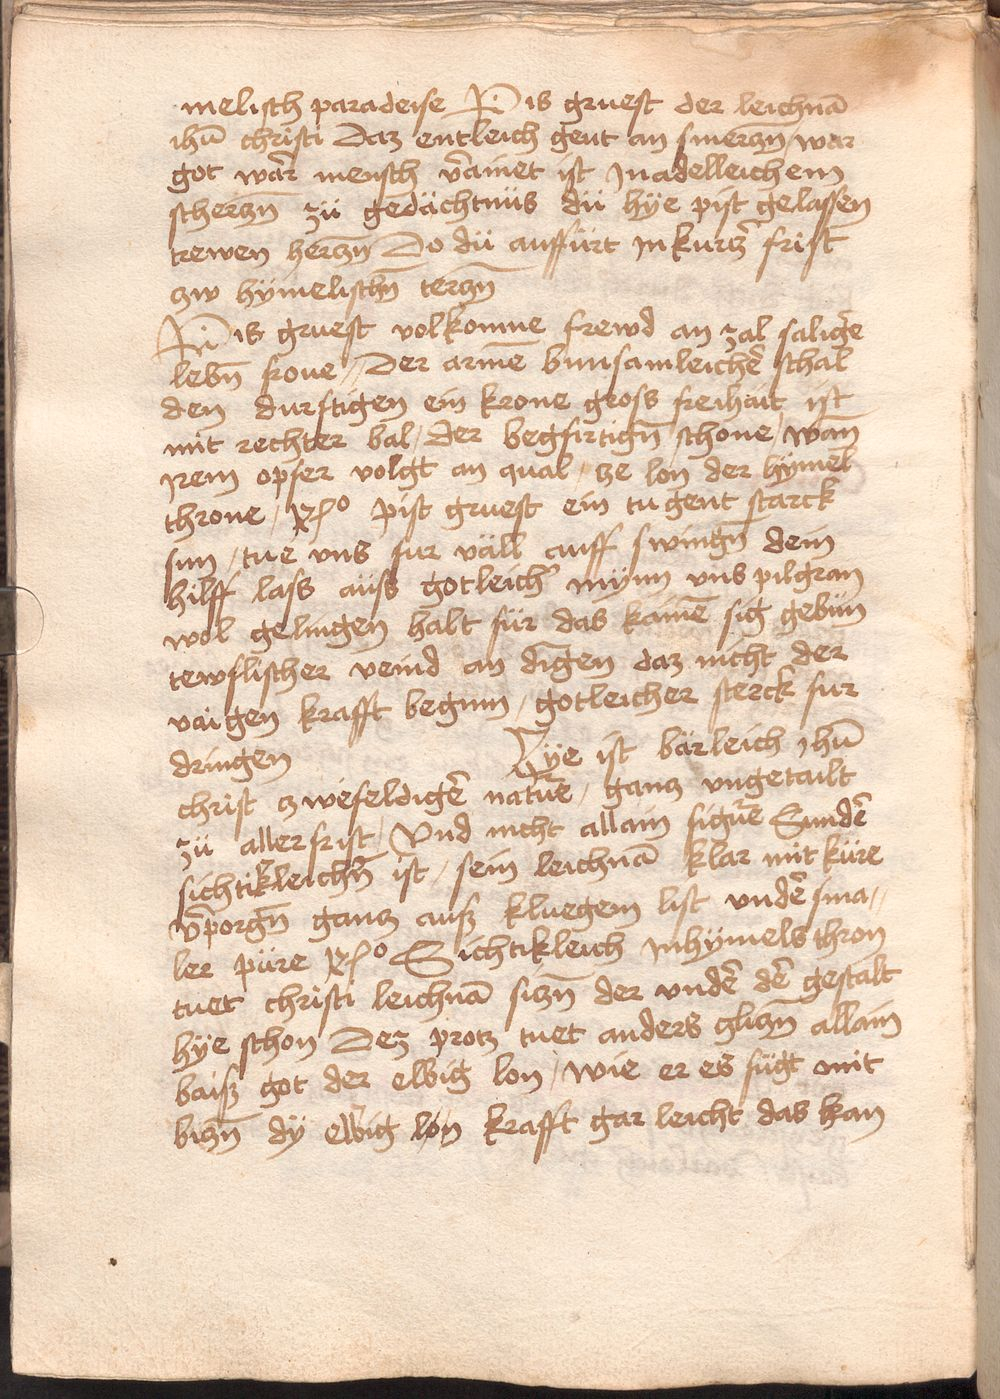 melisch paradeise Pis gruest der leichnā
ihū christi Daz entleich gent an smerczn̄ / war
got wār mensch v̄ainet ist Jn adelleichem
scherczn̄ zü gedächtnüs dü hÿe pist gelassen
trewen herczn̄ Do dü auffürt Jn kurcz̄ frist
czw hÿmelischn̄ terczn̄
Pis gruest volkomne frewd an zal saligē
lebn̄ frone / Der armē bunsamleichē schal
den durftigen ein krone gross freihait ist
mit rechter bal / der begirtign̄ schone / wan̄
irem opfer volgt an qual / ze lon der hÿmel
throne / Ro pist gruest ein tugent starck
sun / tue vns fur väll auff swingn̄ dein
hilff lass auss gotleich̄ mÿnn vns pilgran
wol gelingen halt für das kainē sig gebün
tewflischer veind an dīgen daz nicht der
vaigen krafft begunn / gotleicher sterck fur
dringen Hÿe ist bärleich Jhū
christ zwefeldigē natūē / gancz vngetailt
zü aller frist / Vnd nicht allain figūē Sundē
sichtikleichn̄ ist / sein leichnā klar mit küre
v̄porgn̄ gancz auss kluegem list vndē sma//
ler püre Ro Sichtikleich Jn hÿmels thron
tuet christi leichnā siczn̄ der vndē dē gestalt
hÿe schon Dez protz tuet anders gliczn̄ allain
baiss got der ewig lon / wie er es fügt mit
biczn̄ dÿ ewig lon krafft gar leicht das kan